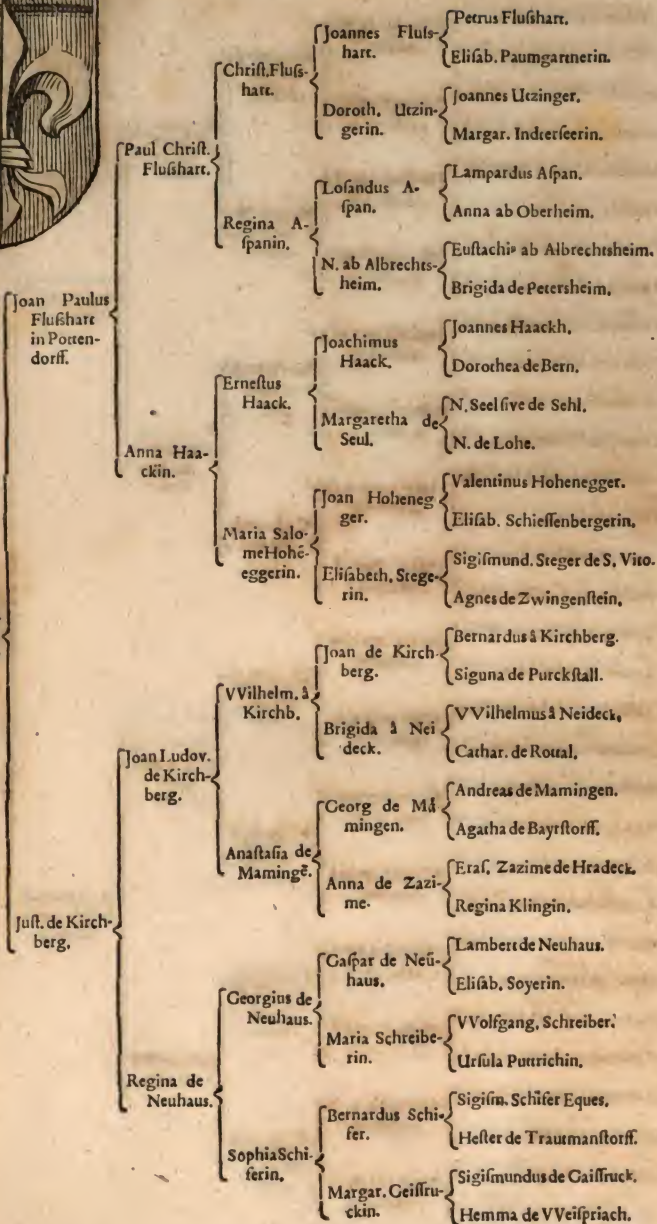 Joan Paulus
Flußhart
in Potten-
dorff.
Just. de Kirch-
berg.
Paul Christ.
Flußhart.
Anna Haa-
ckin.
Joan Ludov.
de Kirch-
berg.
Regina de
Neuhaus.
Christ. Fluß-
hart.
Regina A-
spanin.
Ernestus
Haack.
Maria Salo-
me Hohē-
eggerin.
VVilhelm. â
Kirchb.
Anastasia de
Mamingē.
Georgius de
Neuhaus.
Sophia Schi-
ferin.
Joannes Fluſs-
hart.
Doroth. Utzin-
gerin.
Loſandus A-
ſpan.
N. ab Albrechts-
heim.
Joachimus
Haack.
Margaretha de
Seul.
Joan Hoheneg
ger.
Eliſabeth. Stege-
rin.
Joan de Kirch-
berg.
Brigida â Nei
deck.
Georg de Mā
mingen.
Anna de Zazi-
me.
Gaſpar de Neū-
haus.
Maria Schreibe-
rin.
Bernardus Schi-
fer.
Margar. Geiſſru-
ckin.
Petrus Flußhart.
Eliſab. Paumgartnerin.
Joannes Utzinger.
Margar. Indterſeerin.
Lampardus Aſpan.
Anna ab Oberheim.
Euſtachiꝰ ab Albrechtsheim.
Brigida de Petersheim.
Joannes Haackh.
Dorothea de Bern.
N. Seel ſive de Sehl.
N. de Lohe.
Valentinus Hohenegger.
Eliſab. Schieſſenbergerin.
Sigiſmund. Steger de S. Vito.
Agnes de Zwingenſtein.
Bernardus â Kirchberg.
Siguna de Purckſtall.
VVilhelmus â Neideck.
Cathar. de Rottal.
Andreas de Mamingen.
Agatha de Bayrſtorff.
Eraſ. Zazime de Hradeck.
Regina Klingin.
Lambert de Neuhaus.
Eliſab. Soyerin.
VVolfgang. Schreiber.
Urſula Puttrichin.
Sigiſm. Schifer Eques.
Heſter de Trautmanſtorff.
Sigiſmundus de Gaiſſruck.
Hemma de VVeiſpriach.